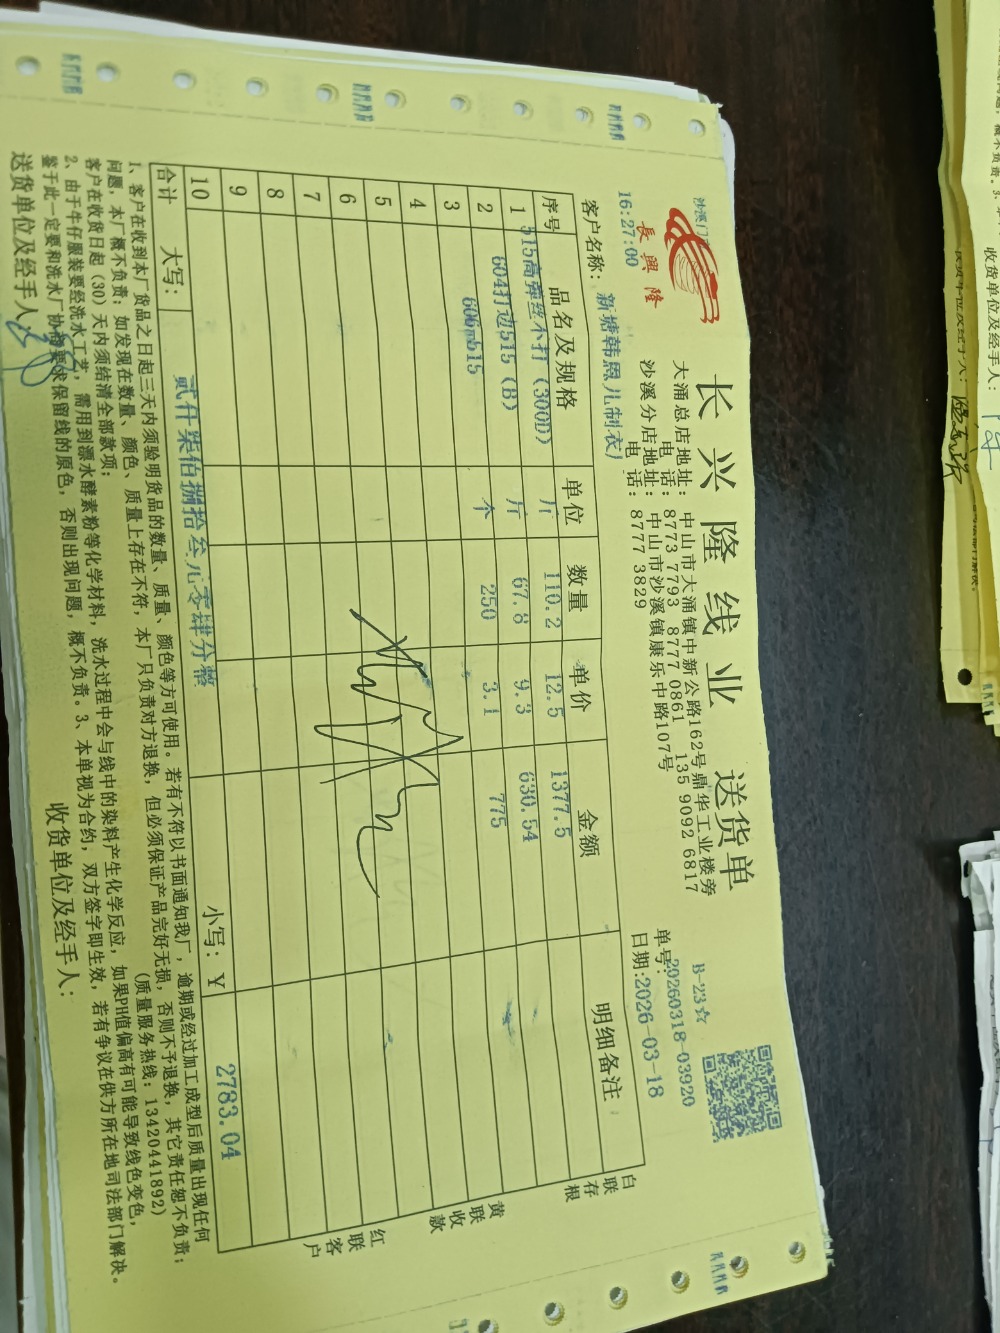 長興隆
16:27:00
长兴隆线业 送货单
大涌总店地址：中山市大涌镇中新公路162号鼎华工业楼旁
电话：8773 7793 8777 0861 135 9092 6817
沙溪分店地址：中山市沙溪镇康乐中路107号
电话：8777 3829
B-23☆
单号：20260318-03920
日期：2026-03-18
客户名称：新塘韩恩儿制衣厂
序号 品名及规格 单位 数量 单价 金额 明细备注
1 515高弹丝不打（300D） 斤 110.2 12.5 1377.5
2 604打边515（B） 斤 67.8 9.3 630.54
3 606 515 个 250 3.1 775
4
5
6
7
8
9
10
合计 大写：贰仟柒佰捌拾叁元零肆分整 小写：￥ 2783.04
白联存根
黄联收款
红联客户
1、客户在收到本厂货品之日起三天内须验明货品的数量、质量、颜色等方可使用。若有不符以书面通知我厂，逾期或经过加工成型后质量出现任何
问题，本厂概不负责；如发现在数量、颜色、质量上存在不符，本厂只负责对方退换，但必须保证产品完好无损，否则不予退换，其它责任恕不负责；
客户在收货日起（30）天内须结清全部款项； （质量服务热线：13420441892）
2、由于牛仔服装要经洗水工艺，需用到源水酵素粉等化学材料，洗水过程中会与线中的染料产生化学反应，如果PH值偏高有可能导致线色变色，
鉴于此一定要和洗水厂协商要求保留线的原色，否则出现问题，概不负责。3、本单视为合约，双方签字即生效，若有争议在供方所在地司法部门解决。
送货单位及经手人： 收货单位及经手人：
收货单位及经手人：